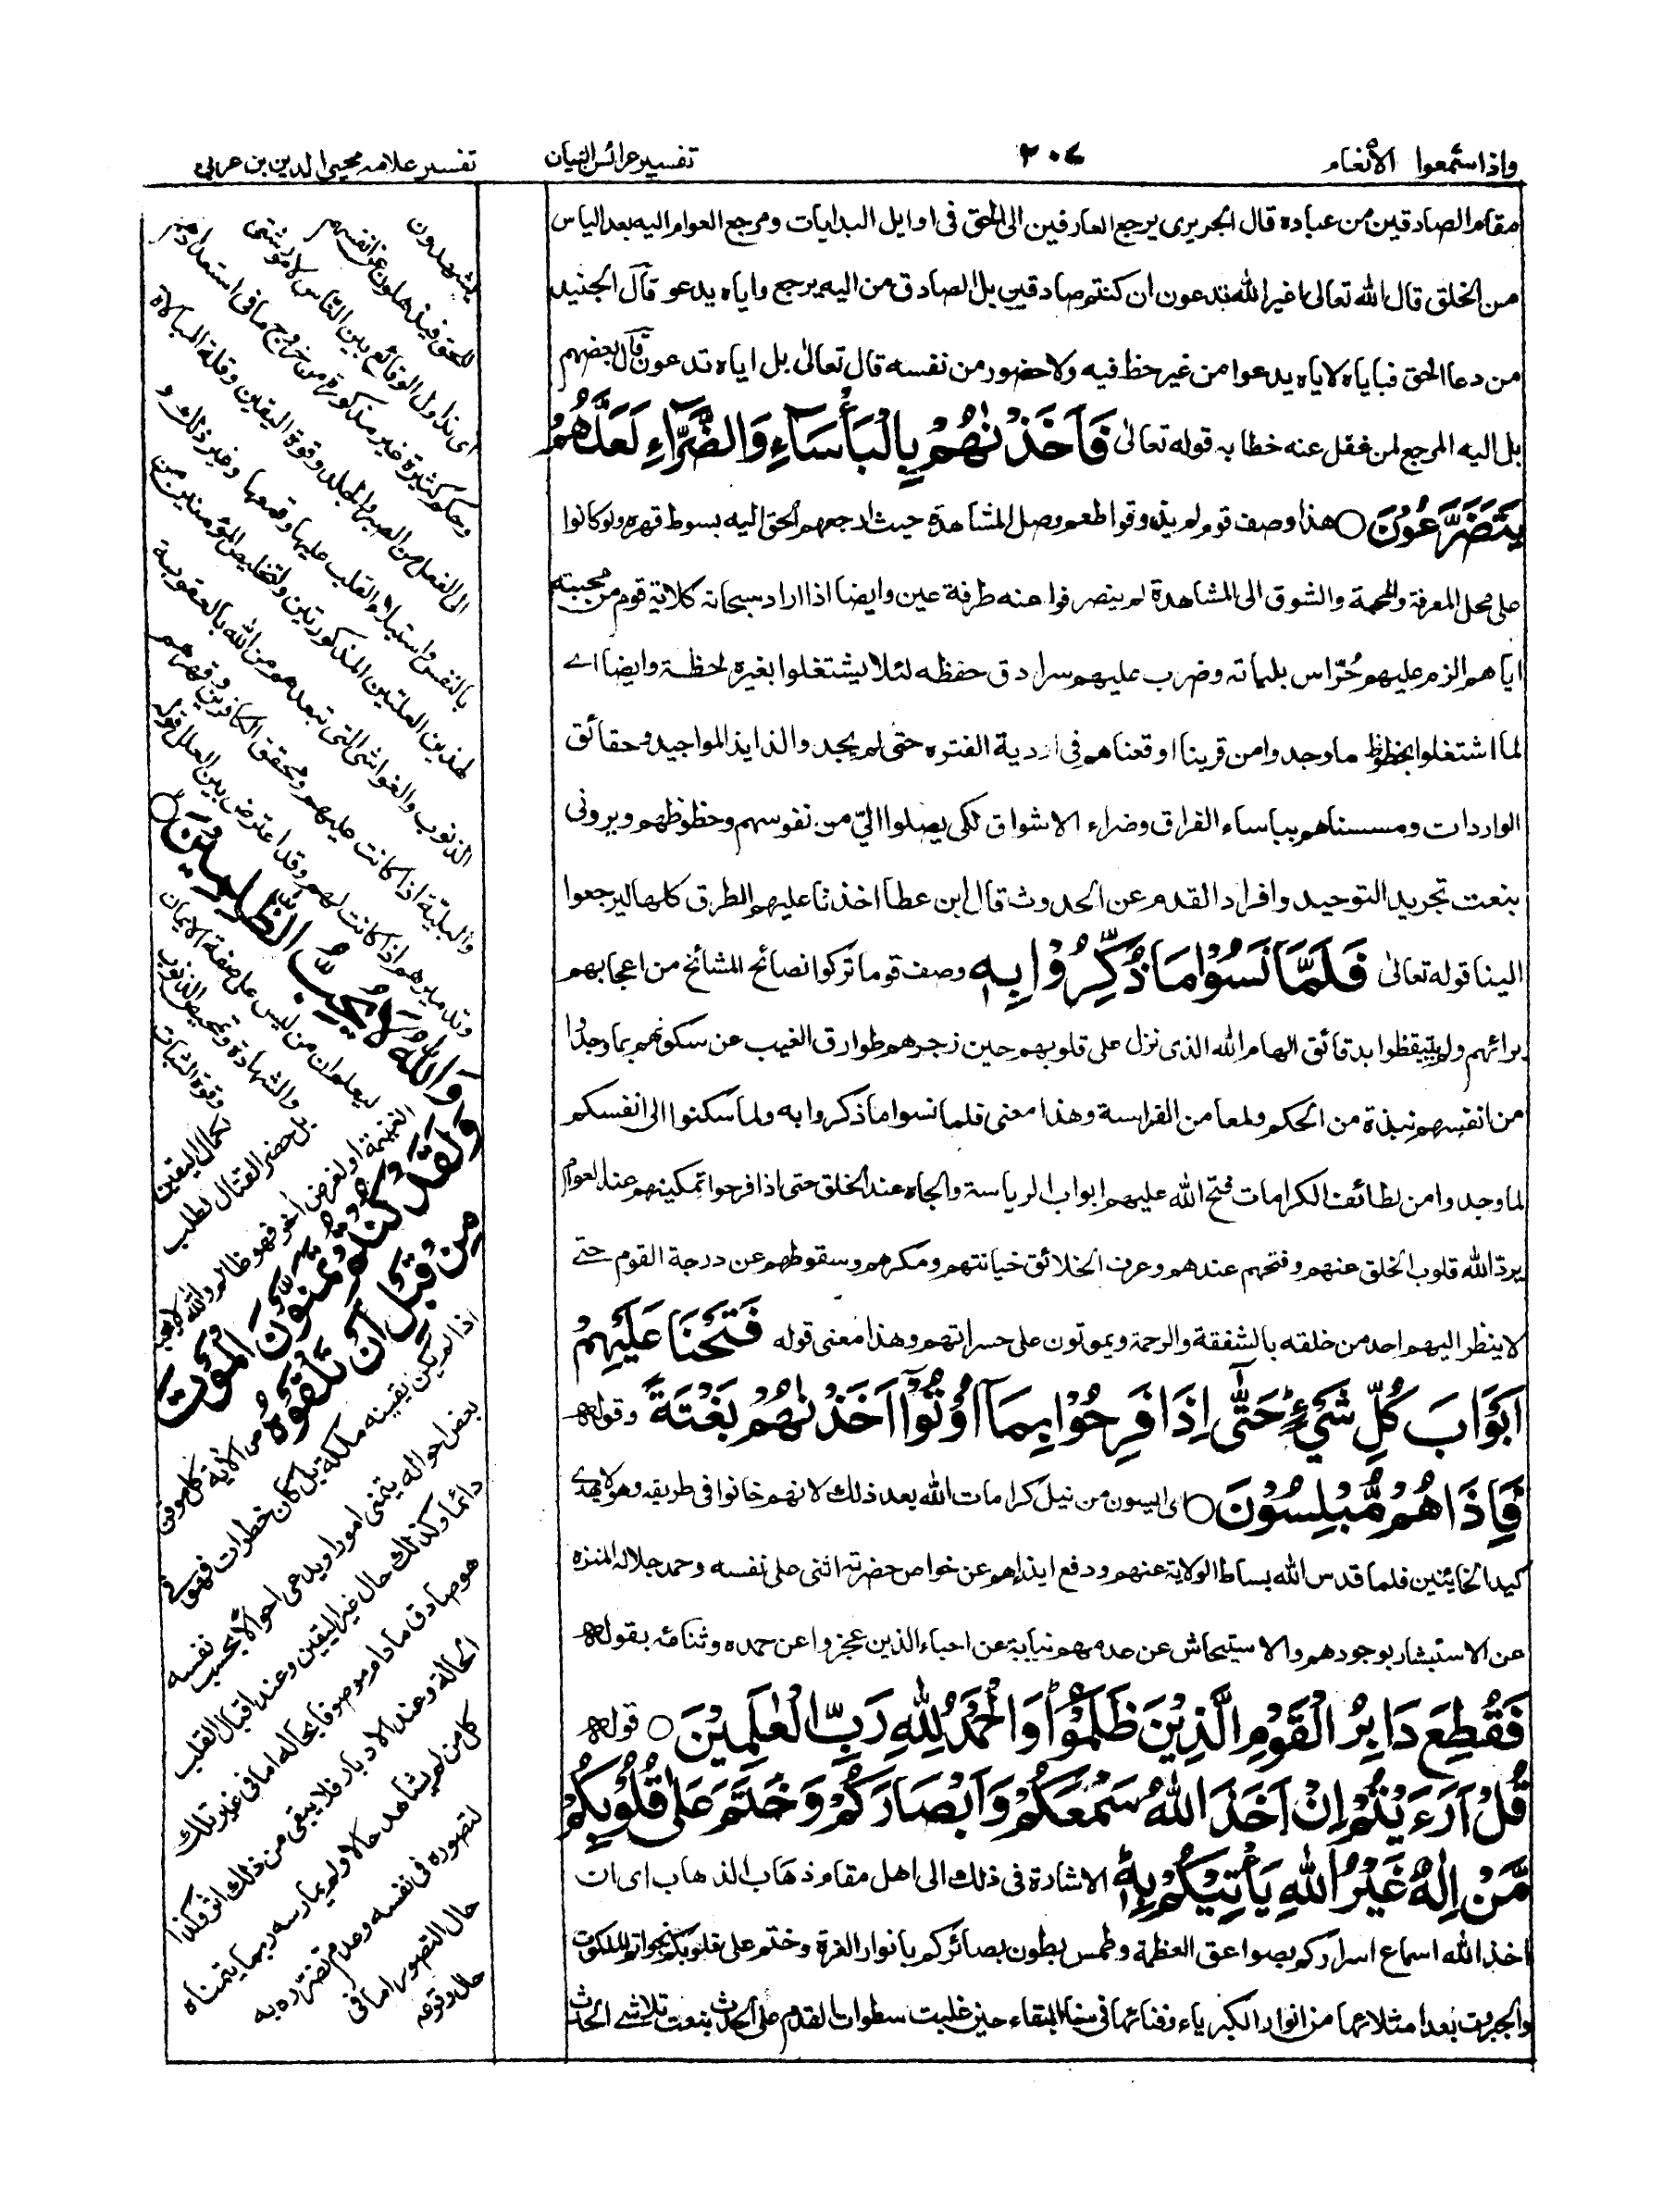 واذا ستمعوا الأنعام ٢٠٧ تفسير عرائس البيان تفسير علامه محيى الدين بن عربى
مقام الصادقين من عباده قال الجريرى يرجع العارفين الى الحق فى اوايل البدايات ومرجع العوام اليه بعد الياس
من الخلق قال الله تعالى اغير الله تدعون ان كنتم صادقين بل الصادق من اليه يرجع واياه يدعو قال الجنيد
من دعا الحق فباياه لاياه يدعوا من غير حظ فيه ولا حضور من نفسه قال تعالى بل اياه تدعون قال بعضهم
بل اليه المرجع لمن غفل عنه خطابه قوله تعالى فَاَخَذْنٰهُمْ بِالْبَأْسَآءِ وَالضَّرَّآءِ لَعَلَّهُمْ
يَتَضَرَّعُوْنَ ○ هذا وصف قوم لم يذوقوا طعم وصل المشاهدة حيث ارجعهم الحق اليه بسوط قهره ولو كانوا
على محل المعرفة والمحبة والشوق الى المشاهدة لم ينصرفوا عنه طرفة عين وايضا اذا اراد سبحانه كلاية قوم من محبيته
اياهم الزم عليهم حُرّاس بلياته وضرب عليهم سرادق حفظه لئلا يشتغلوا بغيره لحظة وايضا اے
لما اشتغلوا بحظوظ ما وجدوا من قربنا اوقعناهم فى اردية الفتره حتى لم يجدوا لذايذ المواجيد وحقائق
الواردات ومسسناهم بباساء الفراق وضراء الاشواق لكى يصلوا اليّ من نفوسهم وحظوظهم ويرونى
بنعت تجريد التوحيد وافراد القدم عن الحدوث قال ابن عطا اخذنا عليهم الطرق كلها ليرجعوا
الينا قوله تعالى فَلَمَّا نَسُوْا مَا ذُكِّرُوْا بِهٖ وصف قوما تركوا نصائح المشائخ من اعجابهم
برائهم ولم يتيقظوا بدقائق الهام الله الذى نزل على قلوبهم حين زجرهم طوارق الغيب عن سكونهم بما وجدوا
من انفسهم نبذة من الحكم ولمعا من الفراسة وهذا معنى فلما نسوا ما ذكروا به ولما سكنوا الى انفسكم
لما وجدوا من لطائف الكرامات فتح الله عليهم ابواب الرياسة والجاه عند الخلق حتى اذا فرحوا تمكينهم عند العوام
يردّ الله قلوب الخلق عنهم وفتحهم عندهم وعرف الخلائق خيانتهم ومكرهم وسقوطهم عن درجة القوم حتے
لا ينظر اليهم احد من خلقه بالشفقة والرحمة ويموتون على حسراتهم وهذا معنى قوله فَتَحْنَا عَلَيْهِمْ
اَبْوَابَ كُلِّ شَيْءٍ حَتّٰى اِذَا فَرِحُوْا بِمَآ اُوْتُوْٓا اَخَذْنٰهُمْ بَغْتَةً وقوله
فَاِذَا هُمْ مُّبْلِسُوْنَ ○ اى ايسون من نيل كرامات الله بعد ذلك لانهم خانوا فى طريقه وهو لا يهدى
كيد الخاينين فلما قدس الله بساط الولاية عنهم ودفع ايذاءهم عن خواص حضرته اثنى على نفسه وحمد جلاله المنزه
عن الاستبشار بوجودهم والاستيحاش عن عدمهم نيابة عن احباءالذين عجزوا عن حمده وثنائه بقوله
فَقُطِعَ دَابِرُ الْقَوْمِ الَّذِيْنَ ظَلَمُوْا وَالْحَمْدُ لِلّٰهِ رَبِّ الْعٰلَمِيْنَ ○ قوله
قُلْ اَرَءَيْتُمْ اِنْ اَخَذَ اللهُ سَمْعَكُمْ وَاَبْصَارَكُمْ وَخَتَمَ عَلٰى قُلُوْبِكُمْ
مَّنْ اِلٰهٌ غَيْرُ اللهِ يَأْتِيْكُمْ بِهٖ الاشارة فى ذلك الى اهل مقام ذهاب الذهاب اى ان
اخذ الله اسماع اسراركم بصواعق العظمة وطمس بطون بصائركم بانوار الغرة وختم على قلوبكم الملكوت
والجبروت بعد امتلائها من انوار الكبرياء وفنائها فى سناء البقاء حين غلبت سطوات القدم على الحدث بنعت تلاشے الحدث
يشهدون
للحق فيذهلون عن انفسهم
اى نداول الوقائع بين الناس لامور شتى
وحكم كثيرة غير مذكورة من خروج ما فى استعدادهم
الى الفعل من الصبر والجلد وقوة اليقين وقلة المبالاة
بالنفس واستيلاء القلب عليها وقمعها وغير ذلك و
لهذين العلتين المذكورتين ولتخليص المؤمنين من
الذنوب والغواشى التى تبعدهم من الله بالعقوبة
والبلية اذا كانت عليهم ومحقق الكافرين وقهرهم
وتدميرهم اذا كانت لهم وقد اعترض بين العلل قوله
وَاللهُ لَا يُحِبُّ الظّٰلِمِيْنَ ○
ليعلم ان من ليس على صفة الايمان
والشهادة وتمحيص الذنوب
وقوة الثبات
لكمال اليقين
بل حضر القتال لطلب
الغنيمة او لغرض اخر فهو ظالم والله لا يحبه
وَلَقَدْ كُنْتُمْ تَمَنَّوْنَ الْمَوْتَ
مِنْ قَبْلِ اَنْ تَلْقَوْهُ الآية كل موقن
اذا لم يكن يقينه ملكة بل كان خطرات فهو فى
بعض احواله يتمنى امورا ويدعى احوالا بحسب نفسه
دائما وكذلك حال غير اليقين وعند اقبال القلب
هو صادق ما دام موصوفا بحاله اما فى غير تلك
الحالة وعند الادبار فلا يبقى من ذلك اثر وكذا
كل من لم يشاهد حالا ولم يمارسه ربما يتمناه
لتصوره فى نفسه وعدم تضرره به
حال التصور اما فى
حال وقوعه